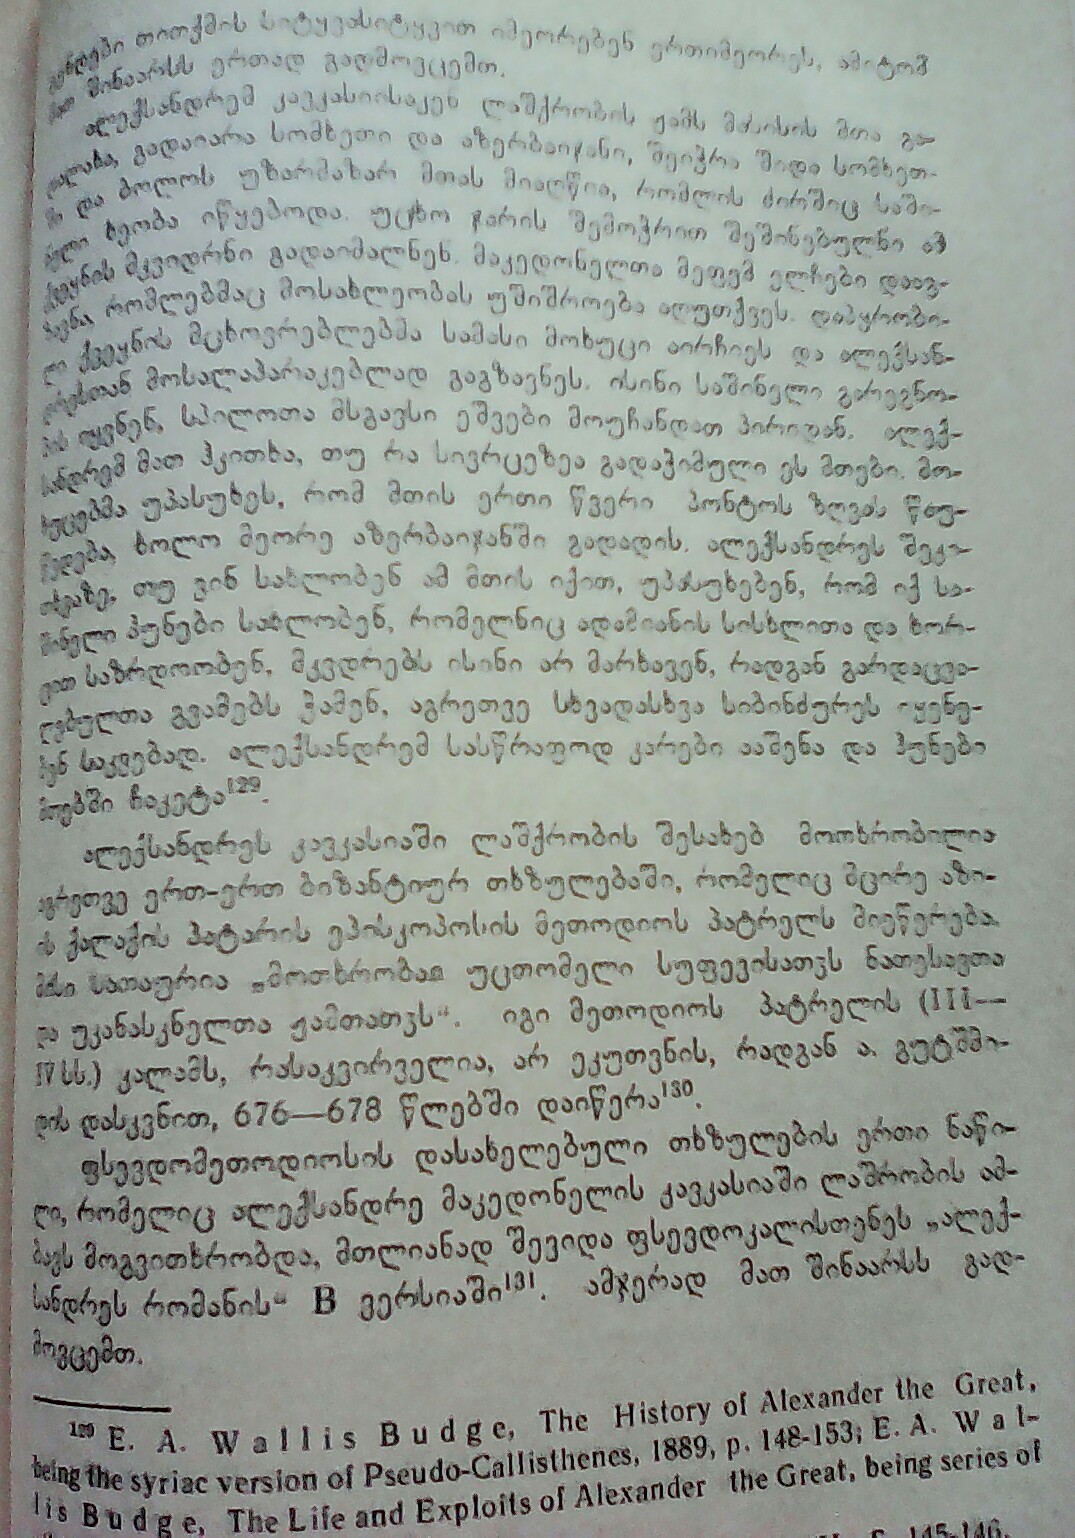 თითქმის სიტყვასიტყვით იმეორებენ ერთიმეორეს, ამიტომ
მათ შინაარსს ერთად გადმოვცემთ.
ალექსანდრემ კავკასიისაკენ ლაშქრობის ჟამს მასისის მთა გა-
დალახა, გადაიარა სომხეთი და აზერბაიჯანი, შეიჭრა შიდა სომხეთ-
ში და ბოლოს უზარმაზარ მთას მიაღწია, რომლის ძირშიც საში-
ნელი ხეობა იწყებოდა. უცხო ჯარის შემოჭრით შეშინებულნი ამ
ქვეყნის მკვიდრნი გადაიმალნენ. მაკედონელთა მეფემ ელჩები დააგ-
ზავნა, რომლებმაც მოსახლეობას უშიშროება აღუთქვეს. დაპყრობი-
ლი ქვეყნის მცხოვრებლებმა სამასი მოხუცი აირჩიეს და ალექსან-
დრესთან მოსალაპარაკებლად გაგზავნეს. ისინი საშინელი გარეგნო-
ბის იყვნენ, სპილოთა მსგავსი ეშვები მოუჩანდათ პირიდან. ალექ-
სანდრემ მათ ჰკითხა, თუ რა სივრცეზეა გადაჭიმული ეს მთები. მო-
ხუცებმა უპასუხეს, რომ მთის ერთი წვერი პონტოს ზღვას წვუ-
ხოლო მეორე აზერბაიჯანში გადადის. ალექსანდრეს შეკი-
თხვაზე, თუ ვინ სახლობენ ამ მთის იქით, უპასუხებენ, რომ იქ სა-
შინელი ჰუნები სახლობენ, რომელნიც ადამიანის სისხლითა და ხორ-
ცით საზრდოობენ, მკვდრებს ისინი არ მარხავენ, რადგან გარდაცვა-
ლებულთა გვამებს ჭამენ, აგრეთვე სხვადასხვა სიბინძურეს იყენე-
ბენ საკვებად. ალექსანდრემ სასწრაფოდ კარები ააშენა და ჰუნები
მთებში ჩაკეტა¹²⁹.
ალექსანდრეს კავკასიაში ლაშქრობის შესახებ მოთხრობილია
აგრეთვე ერთ-ერთ ბიზანტიურ თხზულებაში, რომელიც მცირე აზი-
ის ქალაქის პატარის ეპისკოპოსის მეთოდიოს პატრელს მიეწერება.
მისი სათაურია „მოთხრობაჲ უცთომელი სუფევისათჳს ნათესავთა
და უკანასკნელთა ჟამთათჳს“. იგი მეთოდიოს პატრელის (III—
IV სს.) კალამს, რასაკვირველია, არ ეკუთვნის, რადგან ა. გუტშმი-
დის დასკვნით, 676—678 წლებში დაიწერა¹³⁰.
ფსევდომეთოდიოსის დასახელებული თხზულების ერთი ნაწი-
ლი, რომელიც ალექსანდრე მაკედონელის კავკასიაში ლაშრობის ამ-
ბავს მოგვითხრობდა, მთლიანად შევიდა ფსევდოკალისთენეს „ალექ-
სანდრეს რომანის“ B ვერსიაში¹³¹. ამჯერად მათ შინაარსს გად-
მოვცემთ.
¹²⁹ E. A. Wallis Budge, The History of Alexander the Great,
being the syriac version of Pseudo-Callisthenes, 1889, p. 148-153; E. A. Wal-
lis Budge, The Life and Exploits of Alexander the Great, being series of
145-146.